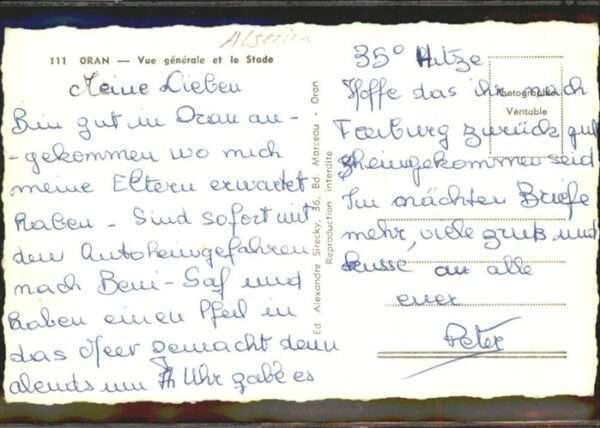 Algerien
111 ORAN — Vue générale et le Stade
Meine Lieben
Bin gut in Oran an-
-gekommen wo mich
meine Eltern erwartet
haben - Sind sofort mit
den Autoheimgefahren
nach Beni-Saf und
haben einen Pfeil in
das Meer gemacht denn
abends um 7 Uhr gabe es
Ed. Alexandre Sirecky, 36, Bd. Marceau - Oran
Reproduction interdite
35° Hitze
Hoffe das ihr nach
Freiburg zurück gut
heimgekommen seid
Im nächten Briefe
mehr, viele gruß und
kusse an alle
euer
Peter
Photographie
Véritable